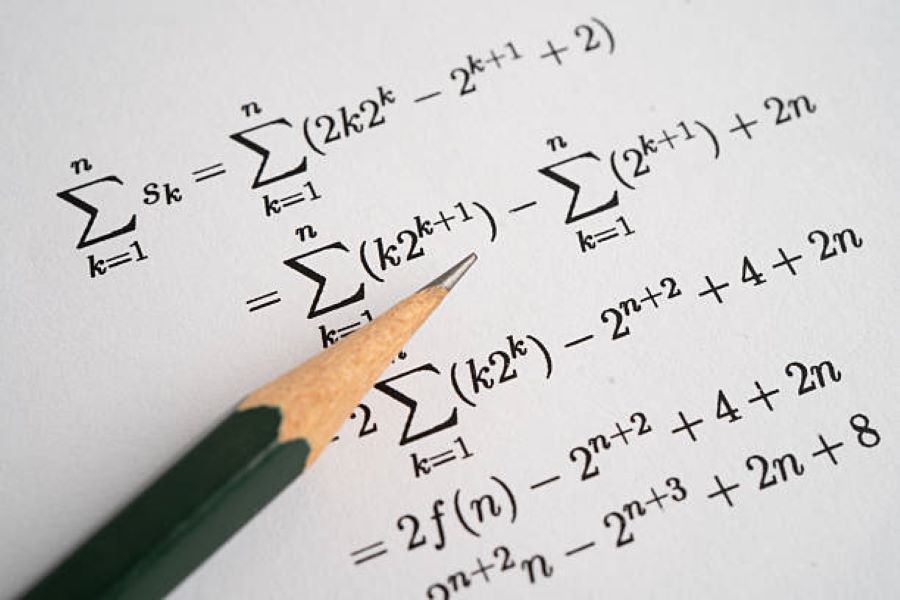 \sum_{k=1}^{n} s_k = \sum_{k=1}^{n} (2k2^k - 2^{k+1} + 2)
= \sum_{k=1}^{n} (k2^{k+1}) - \sum_{k=1}^{n} (2^{k+1}) + 2n
2 \sum_{k=1}^{n} (k2^k) - 2^{n+2} + 4 + 2n
= 2f(n) - 2^{n+2} + 4 + 2n
2^{n+2}n - 2^{n+3} + 2n + 8